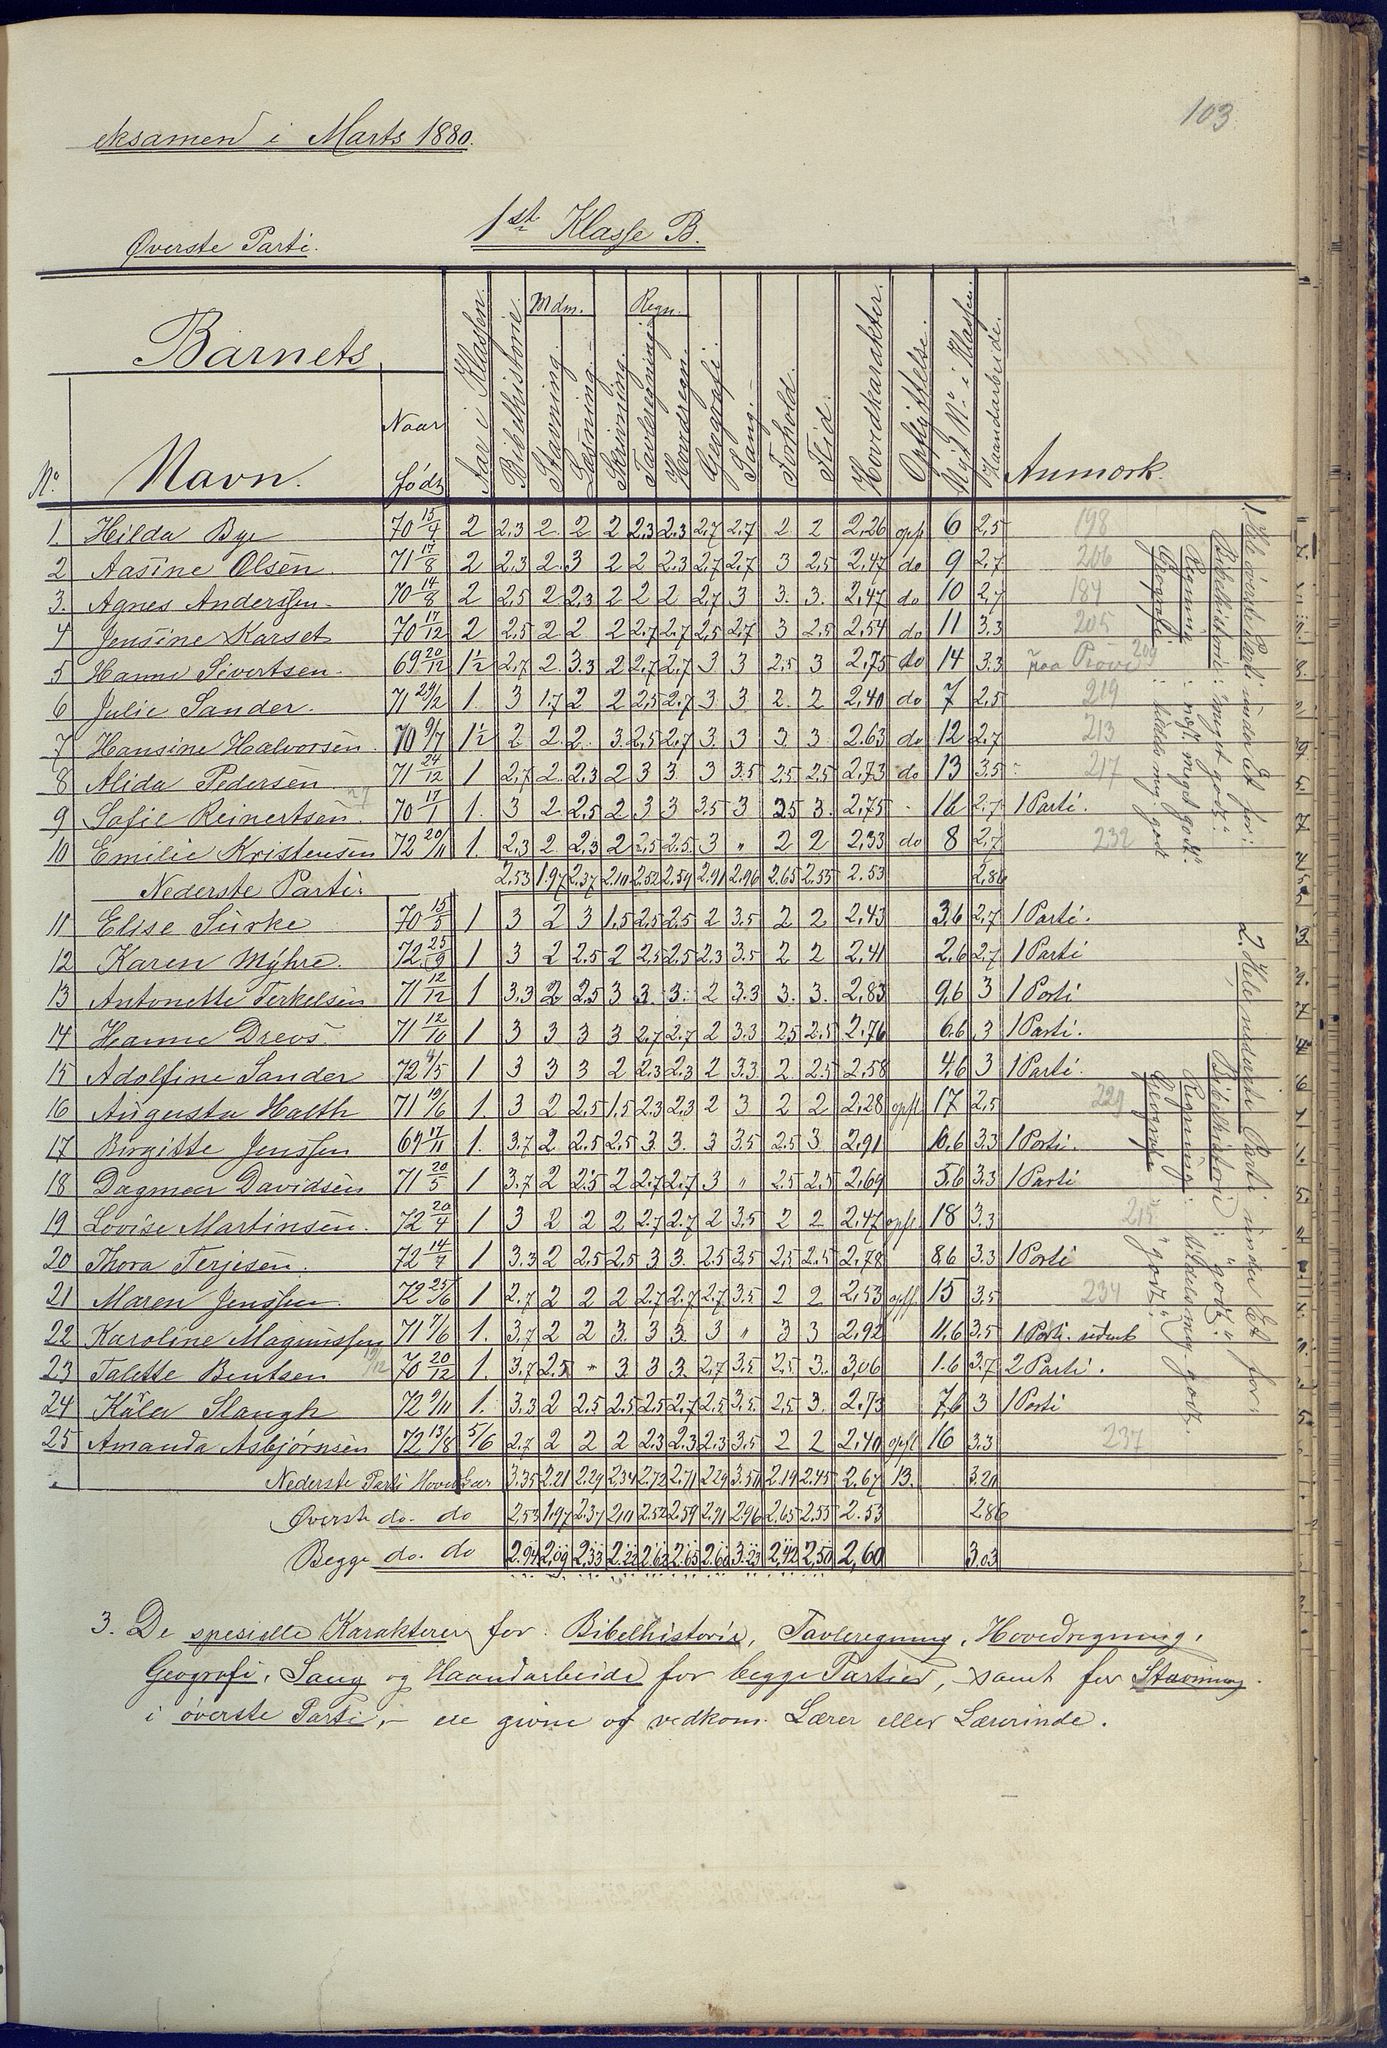 103
eksamen i Marts 1880.
1st Klasse B.
Øverste Parti.
Barnets
Mdm. Regn.
No. Navn. Naar født Aar i Klassen. Bibelhistorie. Stavning. Læsning. Skrivning. Tavleregning Hovedregn. Geografi. Sang. Forhold. Flid. Hovedkarakter. Opflyttelse. Nyt No i Klassen. Haandarbeide. Anmærk.
1 Hilda Bye 70 15/4 2 2,3 2. 2 2 2,3 2,3 2,7 2,7 2 2 2,26 opfl 6 2,5 198
2 Aasine Olsen. 71 17/8 2 2,3 2. 3 2 2 2,3 2,7 2,7 3 2,5 2,47 do 9 2,7 206
3. Agnes Anderssen. 70 14/8 2 2,5 2 2,3 2 2 2. 2,7 3 3. 3. 2,47 do 10 2,7 184
4 Jensine Karset 70 17/12 2 2,5 2 2. 2 2,7 2,7 2,5 2,7 3 2,5 2,54 do 11 3,3 205
5 Hanna Sivertsen. 69 20/12 1½ 2,7 2. 3.3 2 2,7 2,7 3 3 2,5 3 2,75 do 14 3,3 paa Prøve 209
6 Julie Sander. 71 29/2 1. 3 1,7 2 2 2,5 2,7 3 3 2. 2 2,40 do 7 2,5 219
7 Hansine Halvorsen. 70 9/7 1½ 2 2. 2. 3. 2,5 2,7 3. 3 3. 3. 2.63 do 12 2,7 213
8 Alida Pedersen. 71 24/12 1 2,7 2. 2,3 2 3 3. 3 3.5 2,5 2,5 2,73 do 13 3,5 217
9 Sofie Reinertsen. 70 17/1 1. 3 2. 2,5 2 3 3 3,5 3 2,5 3. 2,75 16 2,7 1 Parti.
10 Emilie Kristensen 72 20/11 1. 2,3 2. 2,3 2 2,5 2,5. 3 " 2 2 2,33 do 8 2,7 232
Nederste Parti. 2,53 1.97 2,37 2.10 2,52 2,59 2.91 2,96 2.65 2.55 2.53 2,86
11 Elise Surke 70 15/5 1 3 2 3 1,5 2,5 2,5 2 3,5 2 2 2,43 3.6 2,7 1 Parti.
12 Karen Myhre. 72 25/9 1 3 2 2.5 2 2,5 2,5 2,3 3.5 2 2 2,41 2.6 2,7 1 Parti
13 Antonette Terkelsen 71 12/12 1 3.3 2 2,5 3 3. 3. 2 3.3 3. 3. 2,83 9,6 3 1 Parti
14 Hanne Drevs. 71 12/10 1 3 3 3 3 2,7 2,7 2 3.3 2,5 2,5 2,76 6.6 3 1 Parti.
15 Adolfine Sander 72 4/5 1 3 3 3 2 2,3 2,3 2 3.3 2 2.5 2,58 4,6 3 1 Parti.
16 Augusta Halth 71 19/6 1. 3 2 2,5 1.5 2.3 2,3 2 3 2 2 2,28 opfl 17 2,5 229
17 Birgitte Jenssen 69 17/11 1. 3,7 2 2.5 2,5 3. 3. 3 3.5 2,5 3. 2,91 10.6 3.3 1 Parti.
18 Dagmar Davidsen 71 20/5 1 3,7 2 2.5 2 2,7 2,7 3 " 2.5 2,5 2,69 5.6 3.3 1 Parti
19 Lovise Martinsen. 72 20/4 1 3 2 2 2 2.7 2,7 2 3,5 2 2 2,47 opfl 18 3,3 215
20 Thora Terjesen. 72 14/7 1 3.3 2 2.5 2,5 3 3. 2.5 3,5 2,5 2.5 2,78 8.6 3.3 1 Parti
21 Maren Jenssen 72 25/6 1 2,7 2 2 2 2,7 2,7 2,7 3.5. 2 2 2,53 opfl. 15 3,5 234
22 Karoline Magnussen 71 7/6 1. 3,7 2 2 3. 3 3. 3 " 3 3 2,92 11.6 3.5 1 Parti. udent
23 Talette Bentsen 70 20/12 1. 3,7 2.5 " 3. 3 3. 2,7 3,5 2.5 3. 3,06 1.6 3.7 2 Parti.
24 Käla Slaugh 72 9/11 1. 3.3 2 2.5 2.5 2,5 2,7 2.5 3.5. 2,5 3. 2,73 7.6 3 1 Parti
25 Amanda Asbjørnsen 72 13/8 5/6 2,7 2 2 2 2,3 2,3 2,3 3,5 2 2 2,40 opfl 16 3.3 237
Nederste Parti Hovedkar 3.35 2.21 2.29 2,34 2.72 2,71 2,29 3.50 2.19 2.45 2.67 13. 3.20
Øverste do. do 2,53 1.97 2.37 2,10 2.52 2,59 2.91 2.96 2.65 2,55 2.53 2,86
Begge do. do 2.94 2,09 2,33 2.22 2.62 2.65 2.60 3.23 2,42 2,50 2,60 3.03
3. De spesielle Karakterer for Bibelhistorie, Tavleregning, Hovedregning,
Geografi, Sang og Haandarbeide for begge Partier, samt for Stavning
i øverste Parti, – ere givne af vedkom. Lærer eller Lærerinde.
1. Hele øverste Parti under Et for:
Bibelhistorie: "meget godt".
Regning: "nøgt. meget godt".
Geografi: "tilfdds. mg. godt
2. Hele nederste Parti under Et for:
Bibelhistorie: "godt."
Regning: "tilfdds. meg. godt.
Geografi: "godt."